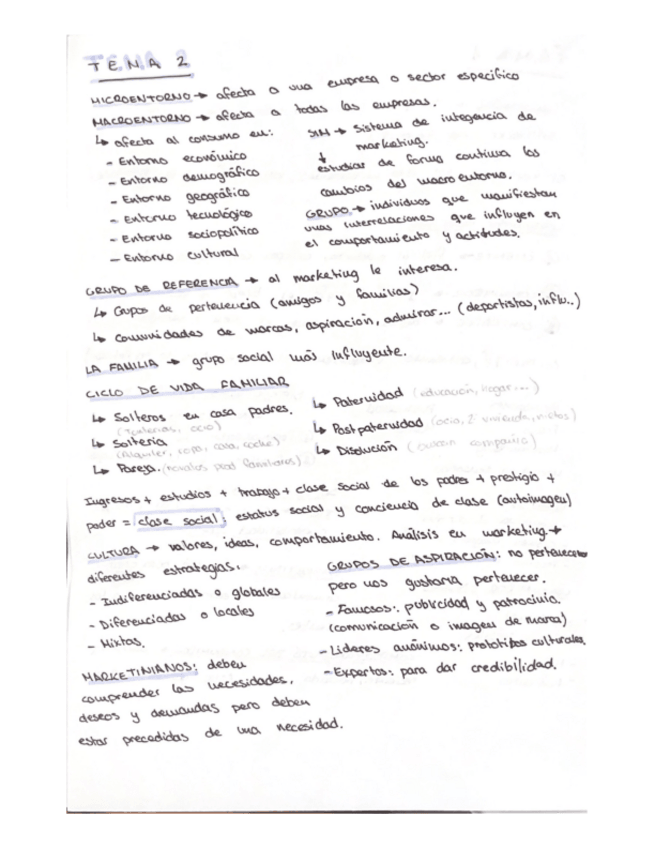 TEMA 2
MICROENTORNO → afecta a una empresa o sector específico
MACROENTORNO → afecta a todas las empresas.
↳ afecta al consumo en:
- Entorno económico
- Entorno demográfico
- Entorno geográfico
- Entorno tecnológico
- Entorno sociopolítico
- Entorno cultural
SIM → Sistema de inteligencia de
marketing.
↓
estudiar de forma continua los
cambios del macroentorno.
GRUPO → individuos que manifiestan
unas interrelaciones que influyen en
el comportamiento y actitudes.
GRUPO DE REFERENCIA → al marketing le interesa.
↳ Grupos de pertenencia (amigos y familias)
↳ Comunidades de marcas, aspiración, admirar... (deportistas, influ..)
LA FAMILIA → grupo social más influyente.
CICLO DE VIDA FAMILIAR
↳ Solteros en casa padres.
ocio)
↳ Soltería
(Alquiler, ropa, casa, coche)
↳ Pareja. (
familiares)
↳ Paternidad (educación, hogar...)
↳ Postpaternidad (ocio, 2ª vivienda, nietos)
↳ Disolución (buscan compañía)
Ingresos + estudios + trabajo + clase social de los padres + prestigio +
poder = clase social; estatus social y conciencia de clase (autoimagen)
CULTURA → valores, ideas, comportamiento. Análisis en marketing →
diferentes estrategias.
- Indiferenciadas o globales
- Diferenciadas o locales
- Mixtas.
MARKETINIANOS: deben
comprender las necesidades,
deseos y demandas pero deben
estar precedidas de una necesidad.
GRUPOS DE ASPIRACIÓN: no pertenecer
pero nos gustaría pertenecer.
- Famosos: publicidad y patrocinio.
(comunicación o imagen de marca)
- Líderes anónimos: prototipos culturales.
- Expertos: para dar credibilidad.